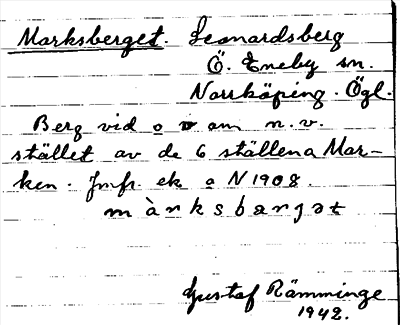 Marksberget. Leonardsberg
Ö. Eneby sn.
Norrköping. Ögl.
Berg vid o v om n.v.
stället av de 6 ställena Mar-
ken. Jmfr. ek o N 1908.
màrksbærjət
Gustaf Rämminge
1942.